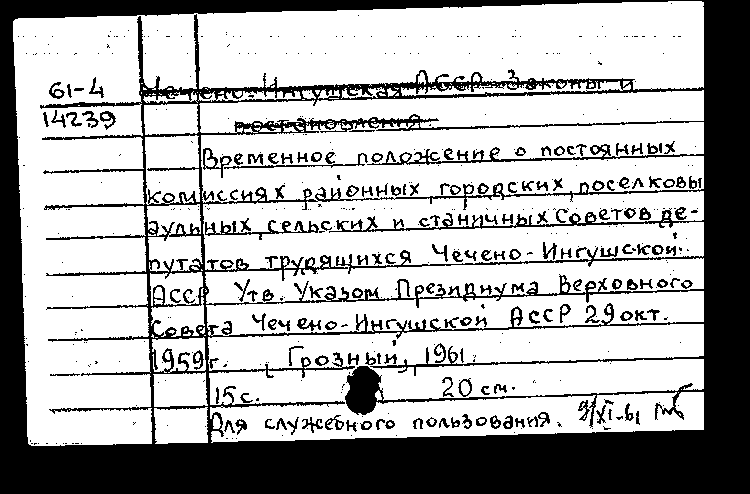 61-4 Чечено-Ингушская АССР. Законы и
14239 постановления.
Временное положение о постоянных
комиссиях районных, городских, поселковы
аульных, сельских и станичных Советов де-
путатов трудящихся Чечено-Ингушской
АССР Утв. Указом Президиума Верховного
Совета Чечено-Ингушской АССР 29 окт.
1959 г. [Грозный], 1961.
15 с. 20 см.
Для служебного пользования. 9/XI-61